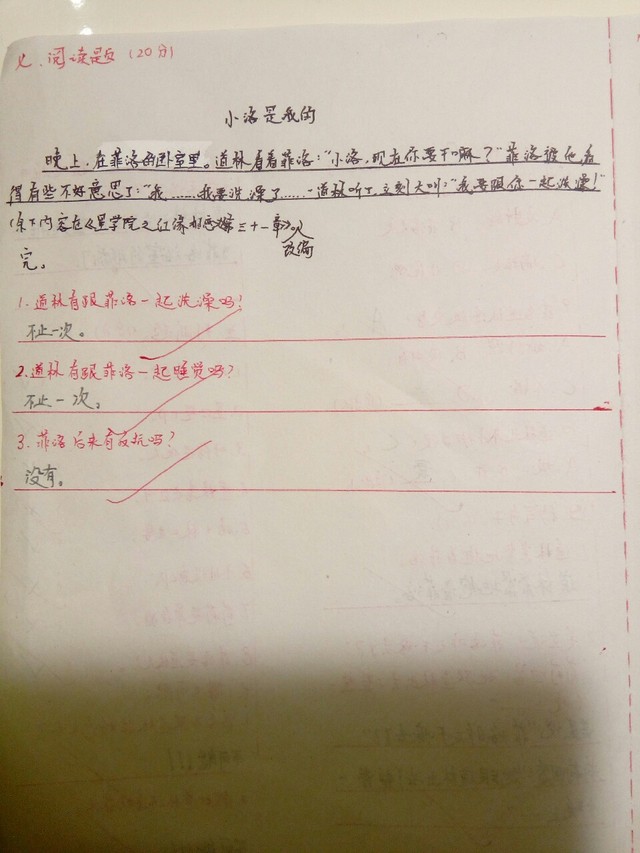 七.阅读题(20分)
小洛是我的
晚上,在菲洛的卧室里。道林看着菲洛:“小洛,现在你要干嘛?”菲洛被他看
得有些不好意思了:“我……我要洗澡了……”道林听了,立刻大叫:“我要跟你一起洗澡!”
(余下内容在《星学院之红缘 三十一章》)
改编
完。
1.道林有跟菲洛一起洗澡吗?
不止一次。
2.道林有跟菲洛一起睡觉吗?
不止一次。
3.菲洛后来有反抗吗?
没有。